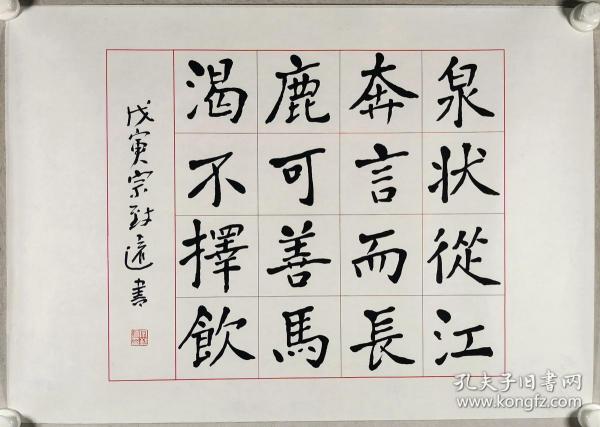 泉状從江
奔言而長
鹿可善馬
渴不擇飲
戊寅宗致遠書
孔夫子旧书网
www.kongfz.com